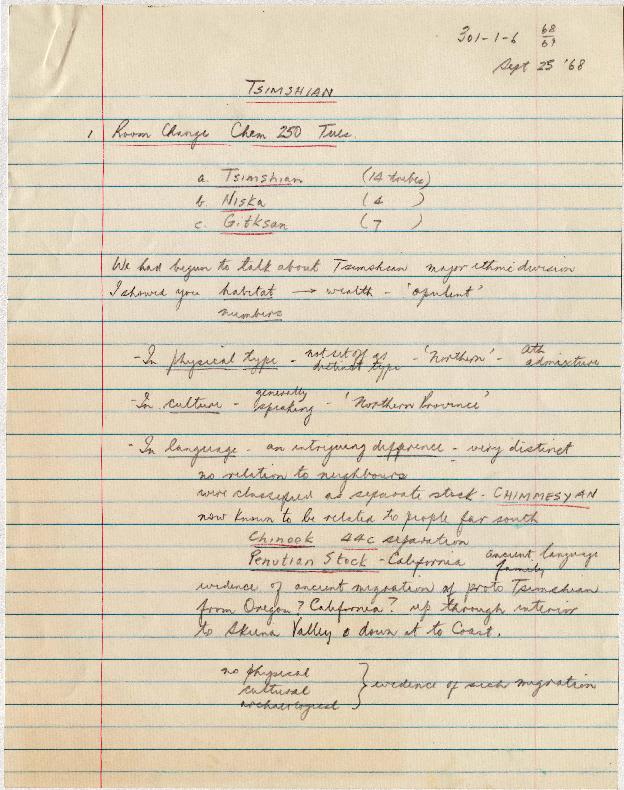 301-1-6 68/69
Sept 25 '68
TSIMSHIAN
1 Room Change Chem 250 Tues.
a. Tsimshian (14 tribes)
b. Niska (4 )
c. Gitksan (7 )
We had begun to talk about Tsimshian major ethnic division
I showed you habitat → wealth - 'opulent'
numbers
- In physical type - not set off as distinct type - 'Northern' - Ath admixture
- In culture - generally speaking - 'Northern Province'
- In language - an intriguing difference - very distinct
no relation to neighbours
were classified as separate stock - CHIMMESYAN
now known to be related to people far south
Chinook 44c separation
Penutian Stock - California ancient language family
evidence of ancient migration of proto Tsimshian
from Oregon? California? up through interior
to Skeena Valley & down it to Coast.
no physical
cultural } evidence of such migration
archaeological